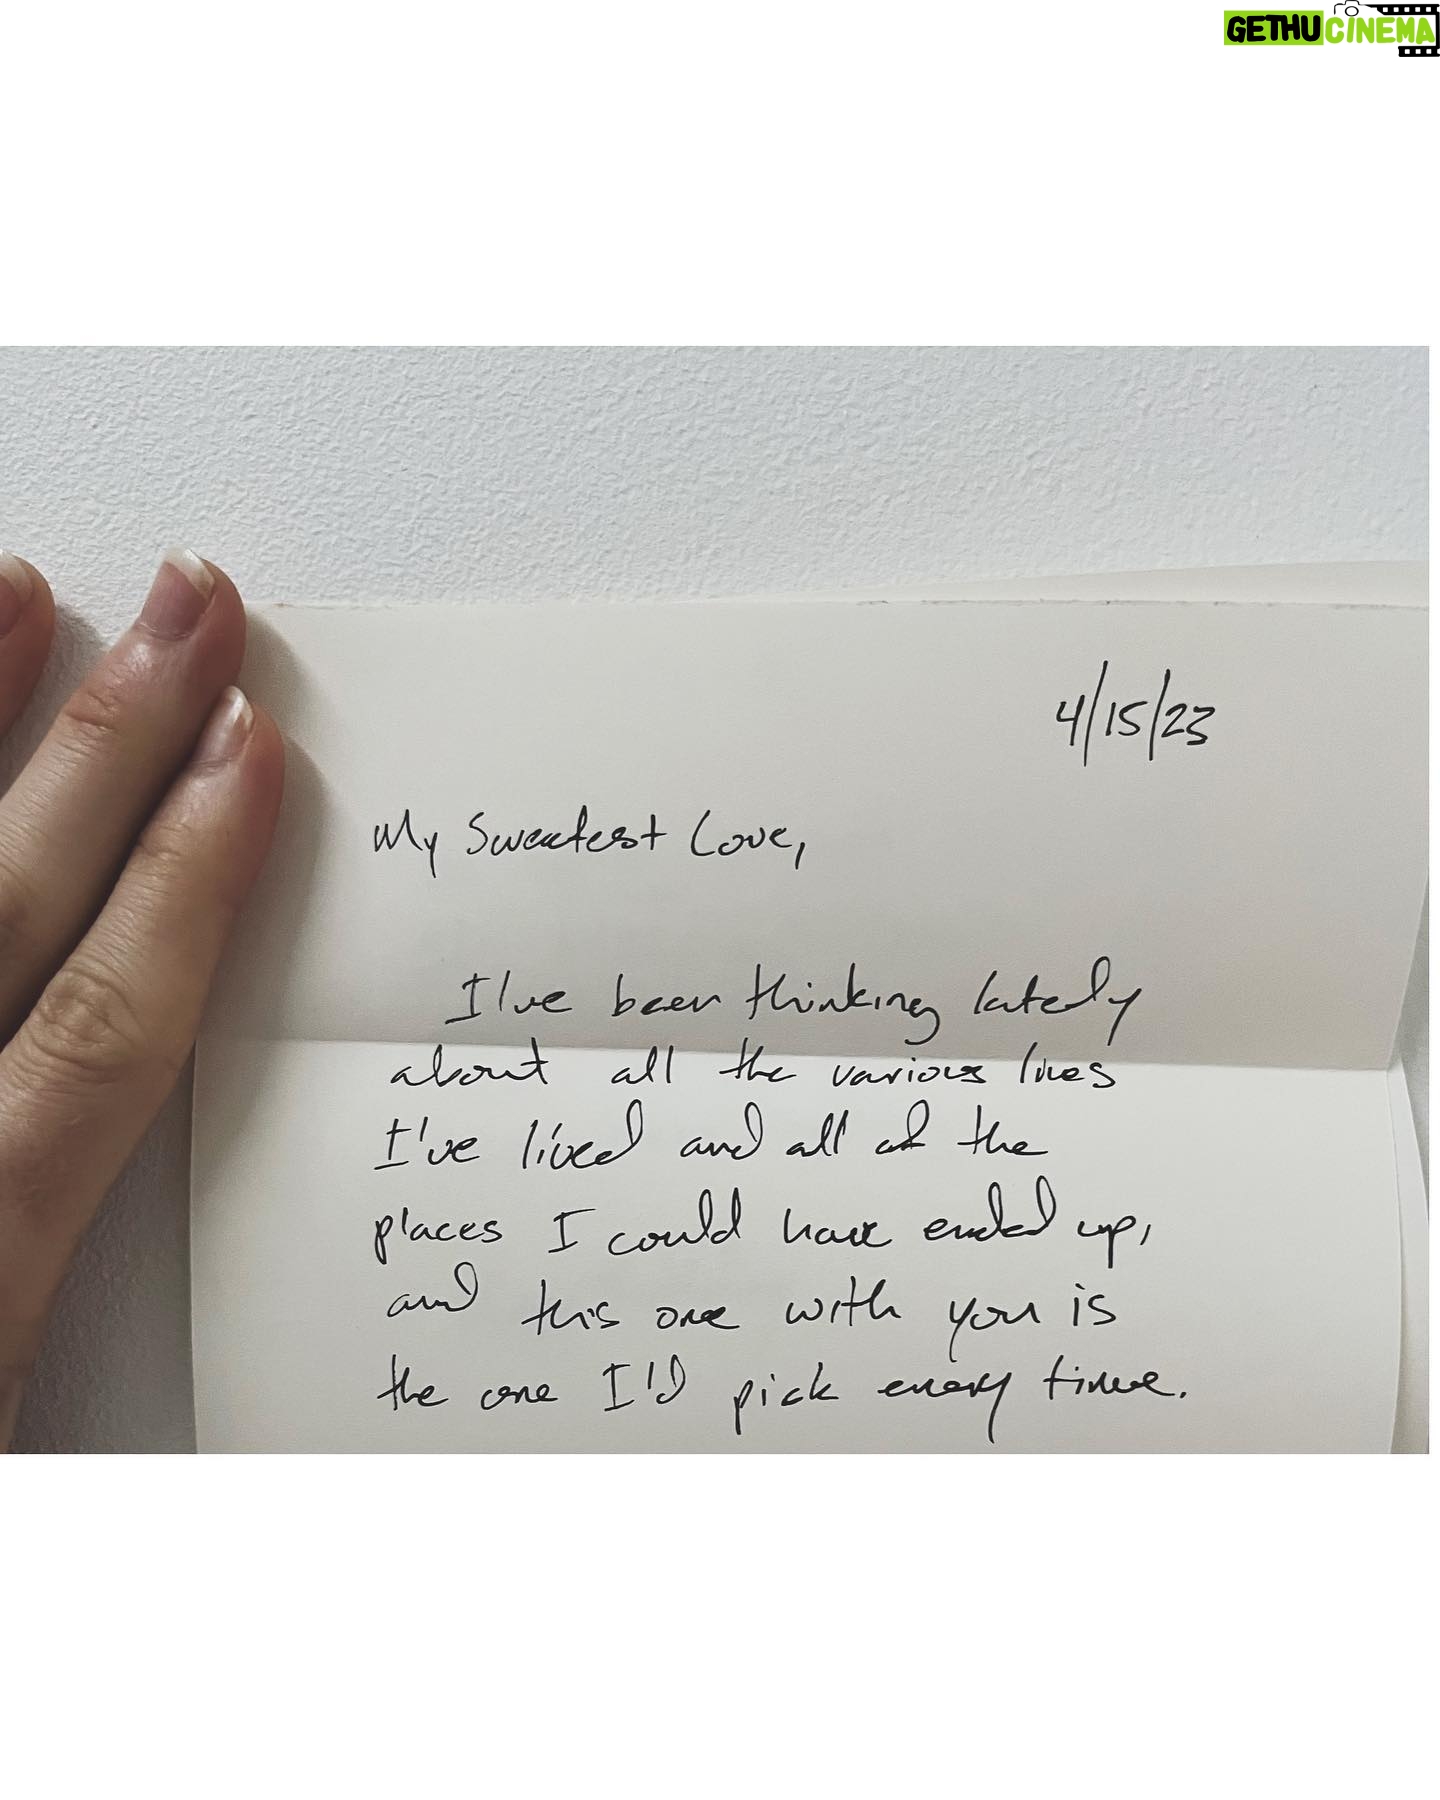 GETHUCINEMA
4/15/23
My Sweetest Love,
I've been thinking lately
about all the various lives
I've lived and all of the
places I could have ended up,
and this one with you is
the one I'd pick every time.